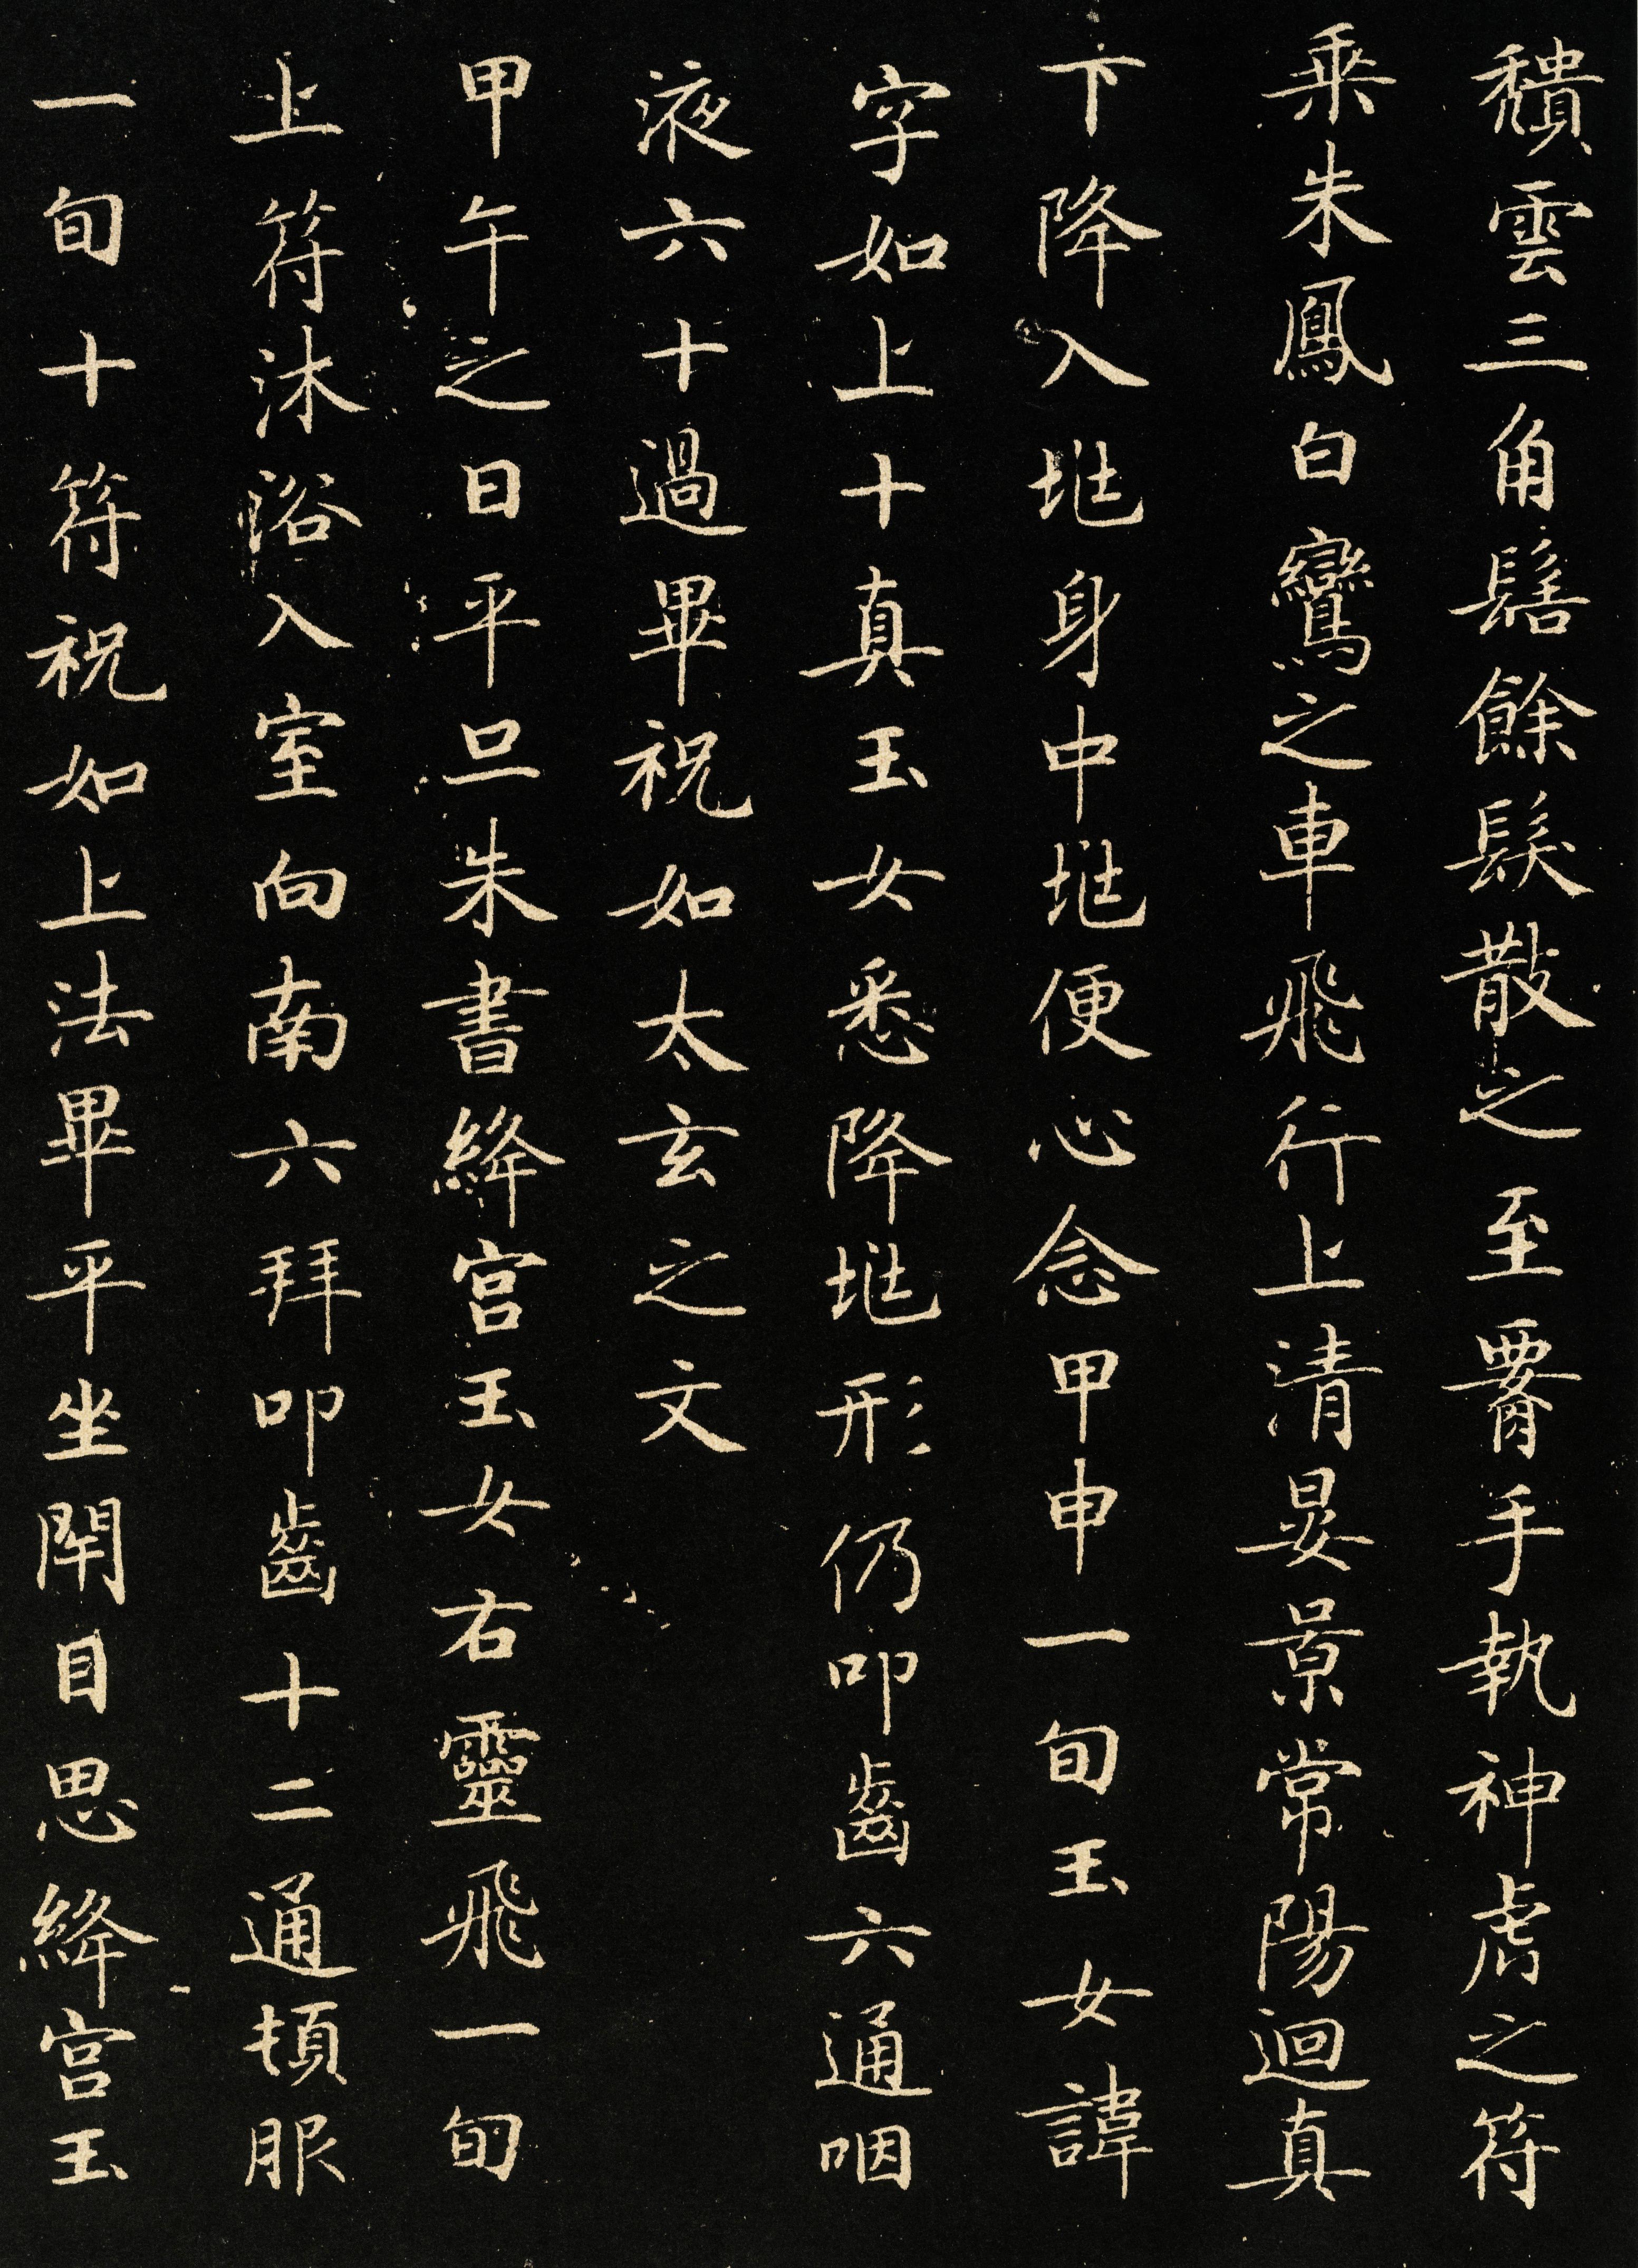 頹雲三角髻餘髮散之至署手執神虎之符
乗朱鳳白鸞之車飛行上清晏景常陽迴真
下降入㘴身中㘴便心念甲申一旬玉女諱
字如上十真玉女悉降㘴形仍叩齒六通咽
液六十過畢祝如太玄之文
甲午之日平旦朱書絳宮玉女右靈飛一旬
上符沐浴入室向南六拜叩齒十二通頓服
一旬十符祝如上法畢平坐閉目思絳宮玉